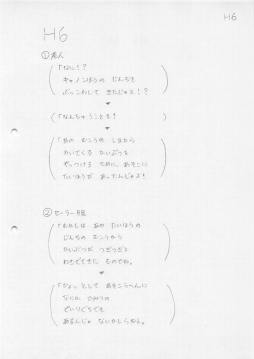 H6
H6
①老人
「なに!?
キャノンほうの じんちを
ぶっこわして きたじゃと!?
「なんちゅうことを!
「あの むこうの しまから
わいてくる かいぶつを
やっつける ために あそこに
たいほうが あったんじゃよ!
②セーラー服
「むかしは あの たいほうの
じんちの むこうから
かいぶつが つぎつぎと
わきでてきた ものでね。
「ひょっとして あそこらへんに
なにか ひみつの
でいりぐちでも
あるんじゃ ないかしらねぇ。